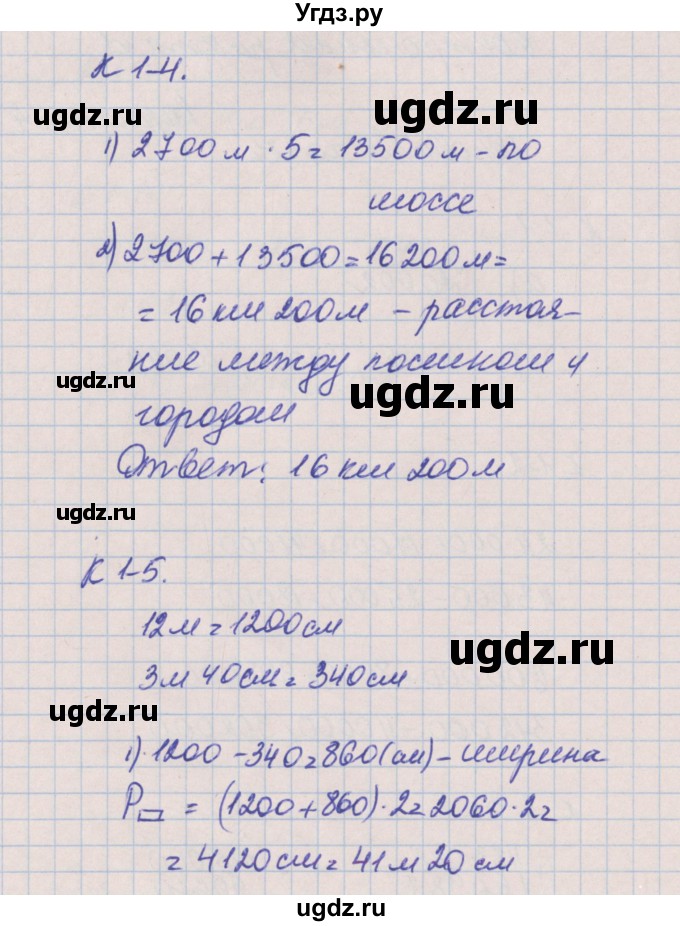 Угдз.ру
К 1-4.
ugdz.ru
ugdz.ru
1) 2700 м · 5 = 13500 м - по
шоссе
2) 2700 + 13500 = 16200 м =
= 16 км 200 м - расстоя-
ние между посёлком и
ugdz.ru
ugdz.ru
городом
Ответ: 16 км 200 м
ugdz.ru
К 1-5.
12 м = 1200 см
ugdz.ru
3 м 40 см = 340 см
ugdz.ru
1) 1200 - 340 = 860 (см) - ширина
P▭ = (1200 + 860) · 2 = 2060 · 2 =
= 4120 см = 41 м 20 см
ugdz.ru